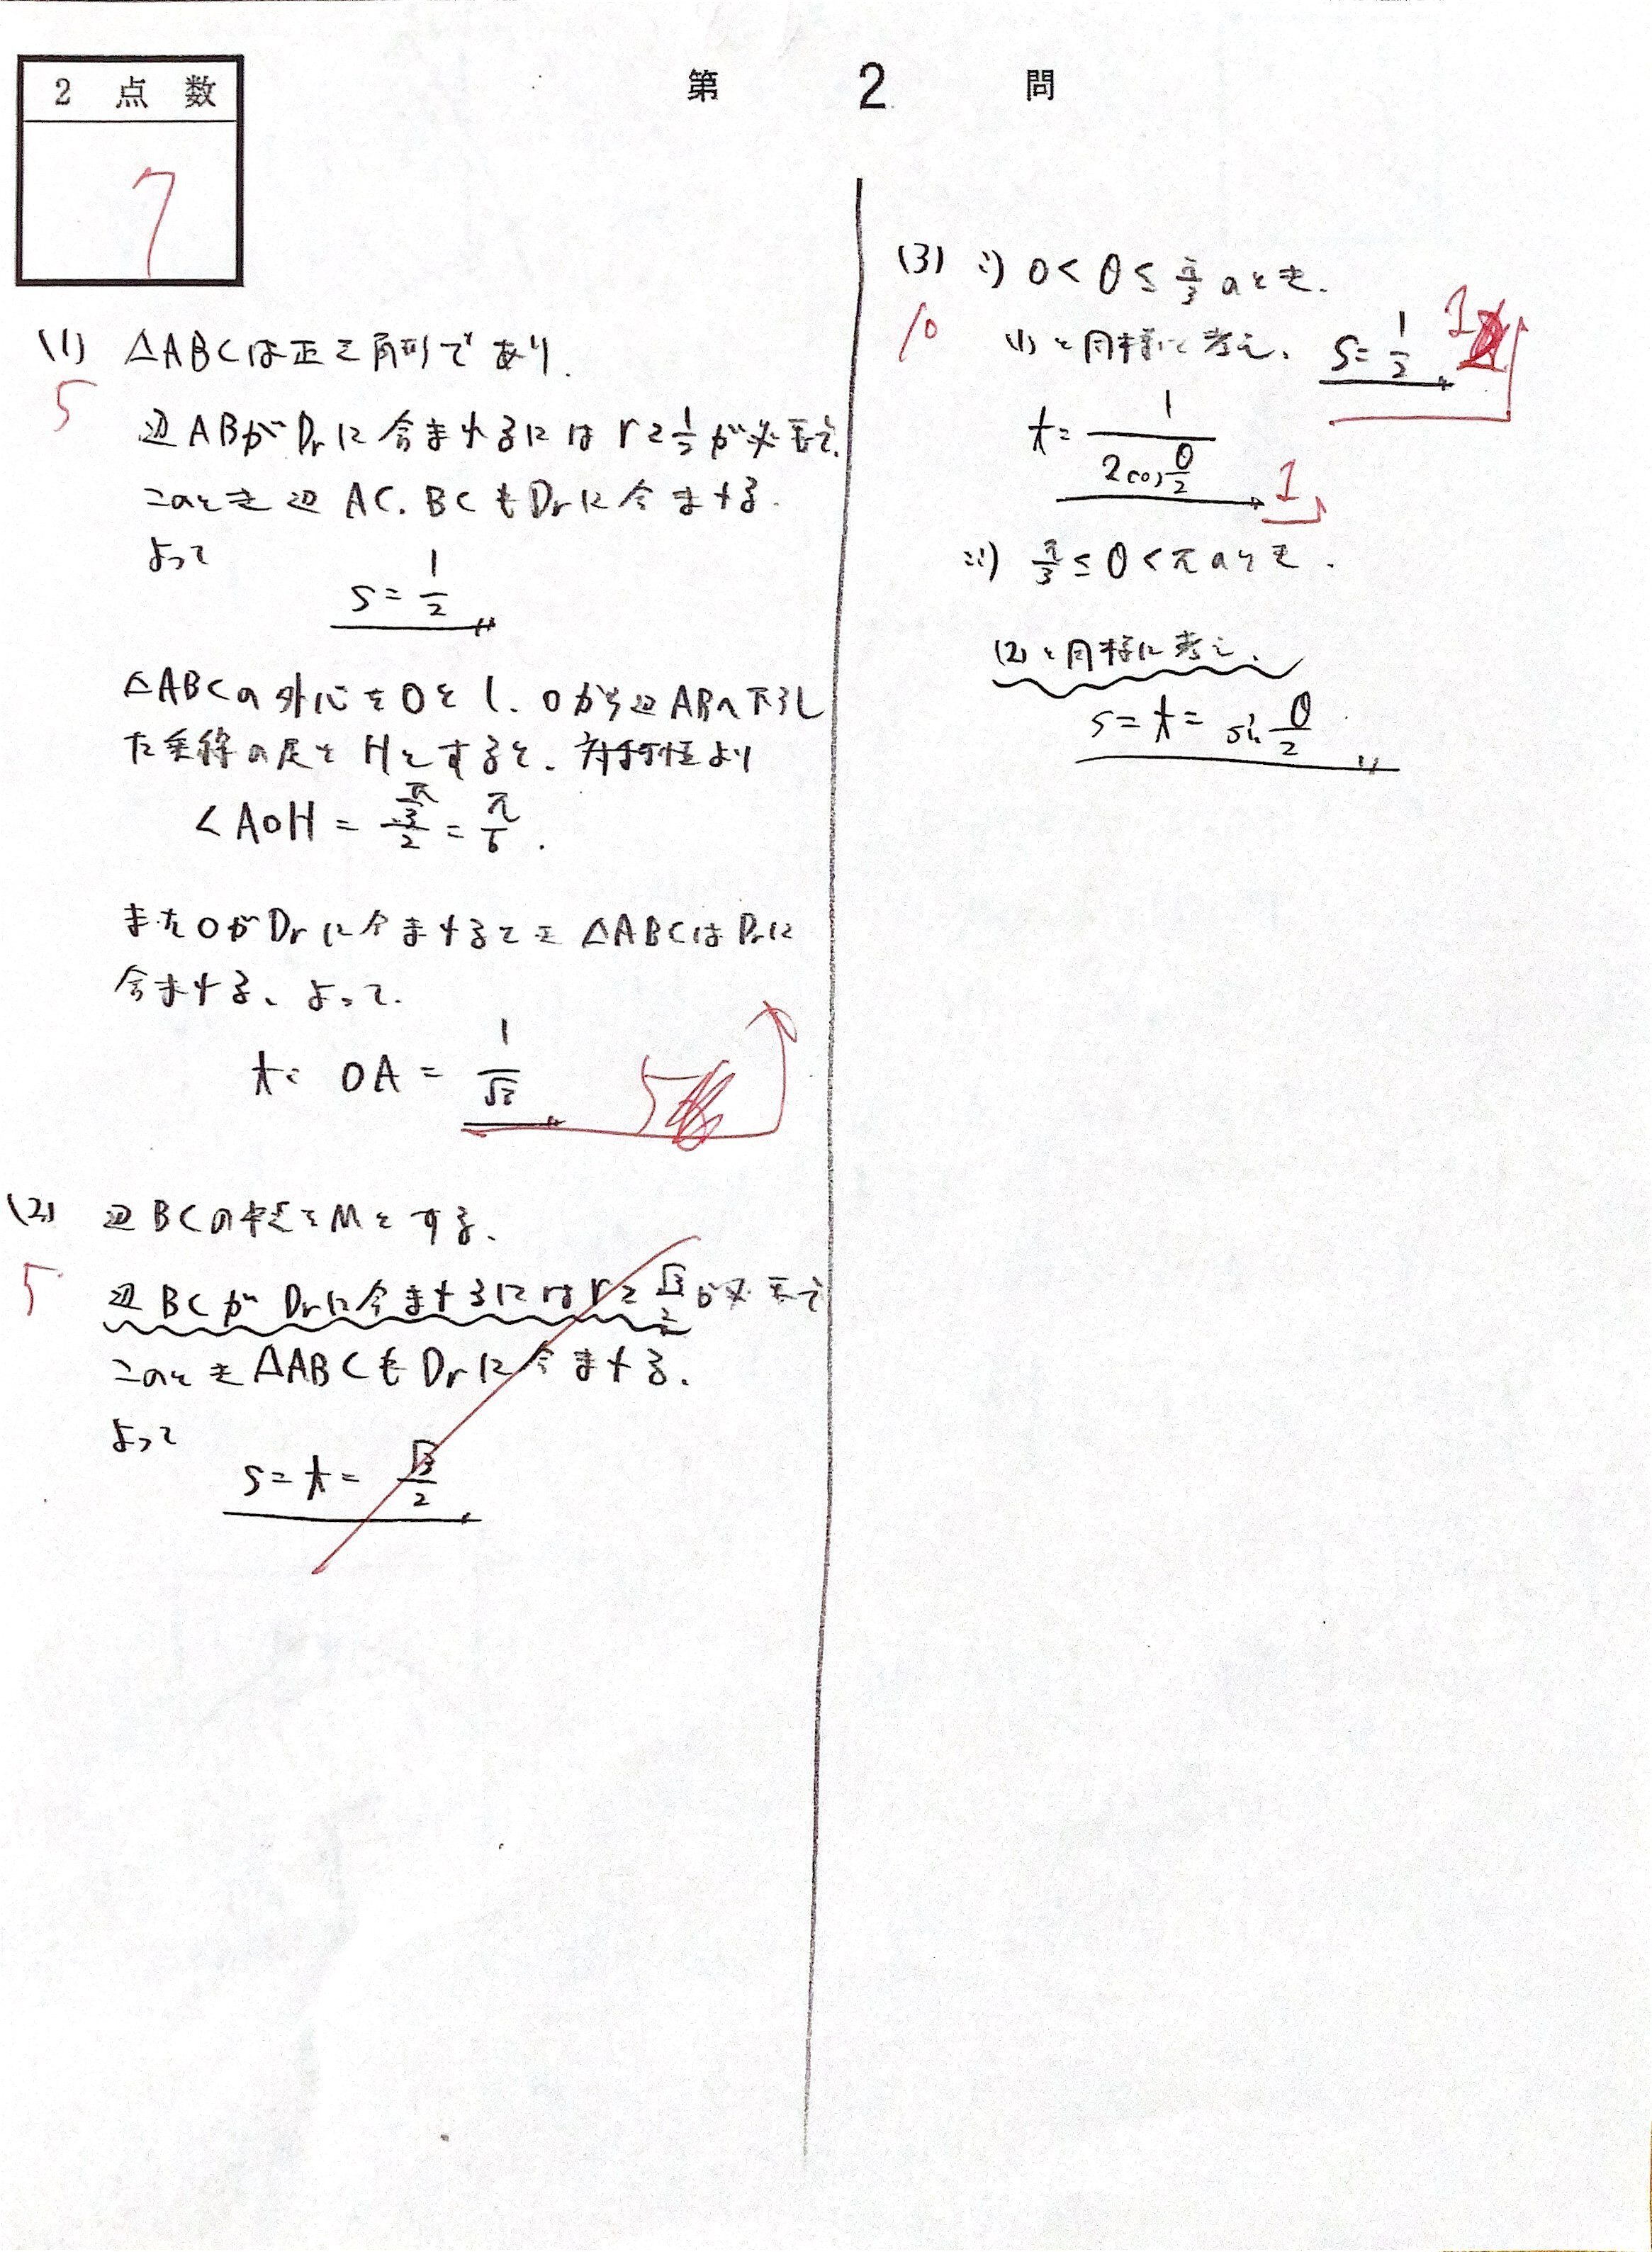 第 2 問
2 点 数
7
(1) △ABCは正三角形であり.
5
辺ABがDrに含まれるには r≧1/2 が必要で.
このとき辺 AC. BCもDrに含まれる.
よって
S = 1/2
△ABCの外心をOとし. Oから辺ABへ下ろし
た垂線の足を Hとすると. 対称性より
∠AOH = (π/3)/2 = π/6 .
またOがDrに含まれるとき △ABCはDrに
含まれる、よって.
t = OA = 1/√3
5
(2) 辺BCの中点をMとする、
5
辺BCが Drに含まれるには r≧√3/2 が必要で
このとき△ABCもDrに含まれる.
よって
S = t = √3/2
(3) i) 0 < θ ≦ π/3 のとき.
10
(1)と同様に考え、 S = 1/2
1
t = 1/(2cos θ/2)
1
ii) π/3 ≦ θ < π のとき .
(2)と同様に考え、
S = t = sin θ/2